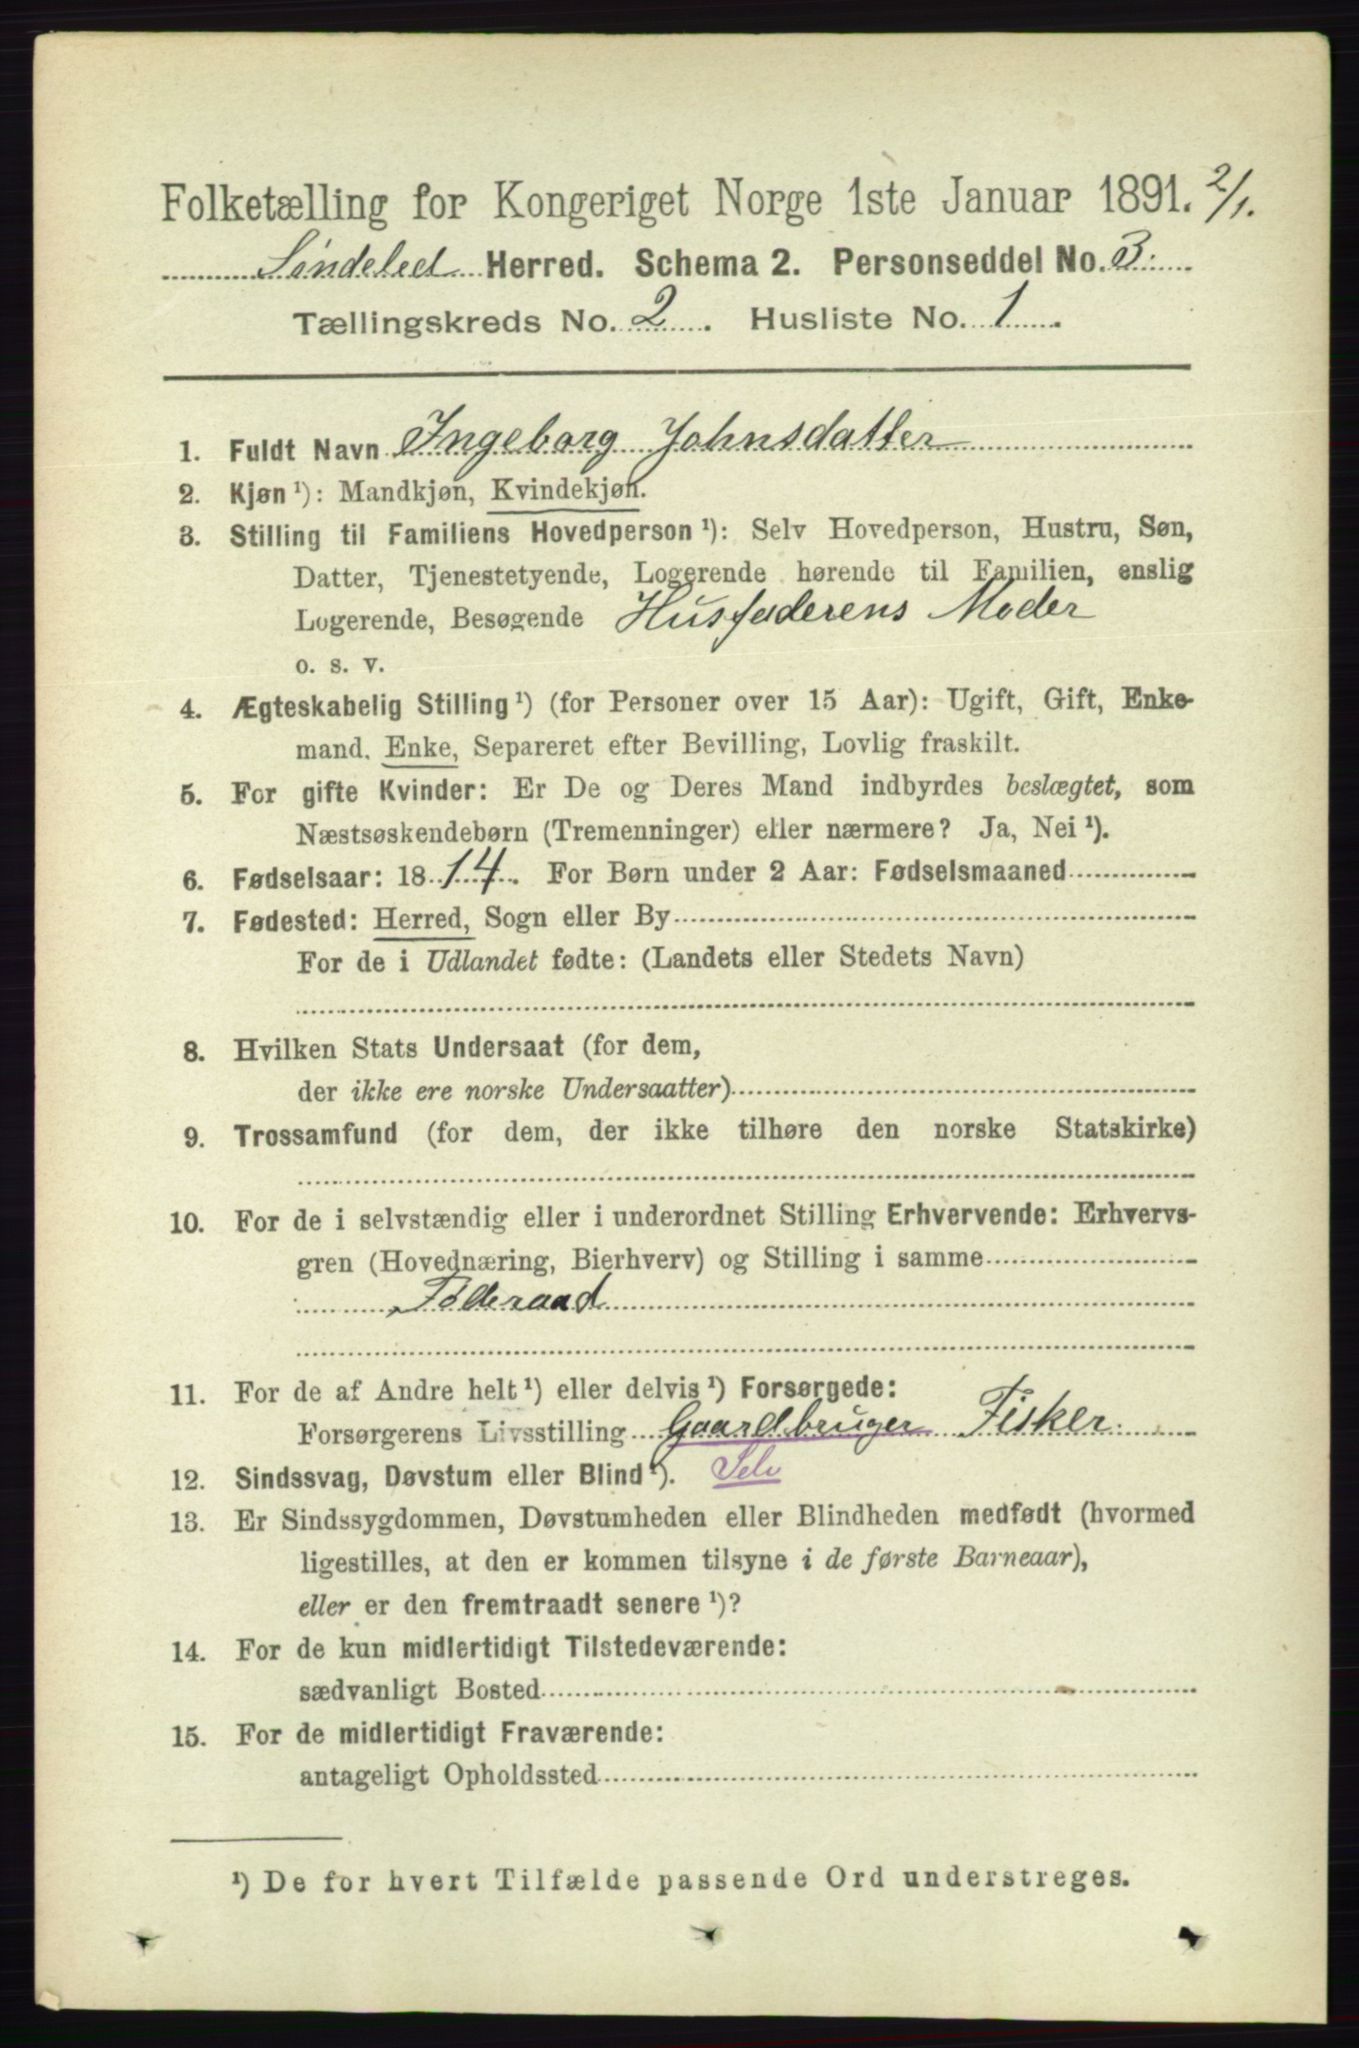 Folketælling for Kongeriget Norge 1ste Januar 1891. 2/1.
Søndeled Herred. Schema 2. Personseddel No. 3.
Tællingskreds No. 2. Husliste No. 1.
1. Fuldt Navn Ingeborg Johnsdatter
2. Kjøn ¹): Mandkjøn, Kvindekjøn.
3. Stilling til Familiens Hovedperson ¹): Selv Hovedperson, Hustru, Søn,
Datter, Tjenestetyende, Logerende hørende til Familien, enslig
Logerende, Besøgende Husfaderens Moder
o. s. v.
4. Ægteskabelig Stilling ¹) (for Personer over 15 Aar): Ugift, Gift, Enke-
mand, Enke, Separeret efter Bevilling, Lovlig fraskilt.
5. For gifte Kvinder: Er De og Deres Mand indbyrdes beslægtet, som
Næstsøskendebørn (Tremenninger) eller nærmere? Ja, Nei ¹).
6. Fødselsaar: 1814. For Børn under 2 Aar: Fødselsmaaned
7. Fødested: Herred, Sogn eller By
For de i Udlandet fødte: (Landets eller Stedets Navn)
8. Hvilken Stats Undersaat (for dem,
der ikke ere norske Undersaatter)
9. Trossamfund (for dem, der ikke tilhøre den norske Statskirke)
10. For de i selvstændig eller i underordnet Stilling Erhvervende: Erhvervs-
gren (Hovednæring, Bierhverv) og Stilling i samme
Føderaad
11. For de af Andre helt ¹) eller delvis ¹) Forsørgede:
Forsørgerens Livsstilling Gaardbruger Fisker
12. Sindssvag, Døvstum eller Blind ¹). Selv
13. Er Sindssygdommen, Døvstumheden eller Blindheden medfødt (hvormed
ligestilles, at den er kommen tilsyne i de første Barneaar),
eller er den fremtraadt senere ¹)?
14. For de kun midlertidigt Tilstedeværende:
sædvanligt Bosted
15. For de midlertidigt Fraværende:
antageligt Opholdssted
¹) De for hvert Tilfælde passende Ord understreges.